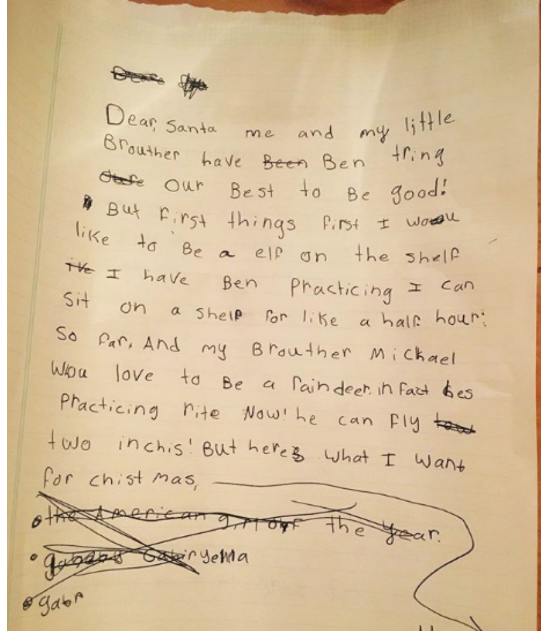 Dear, Santa me and my little
Brouther have Been Ben tring
Our Best to Be good!
But First things First I wouu
like to Be a elf on the shelf
I've I have Ben Practicing I can
Sit on a shelf for like a half hour:
So far, And my Brouther Michael
Wou love to Be a raindeer. in fact hes
Practicing rite Now! he can Fly
two inchis! But heres what I want
for chistmas,
the American girl of the year.
Gabiryella
gabr